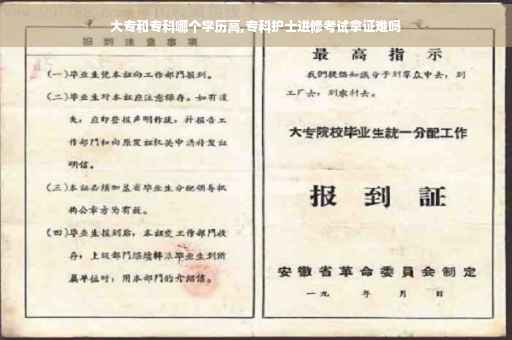 大专和专科哪个学历高,专科护士进修考试拿证难吗
报到注意事项
(一)毕业生凭本证向工作部门报到。
(二)毕业生对本证应注意保存。如有遗
失,应即登报声明作废,并报告工
作部门和向原发证机关申请补发证
明信。
(三)本证必须加盖省毕业生分配领导机
构公章方为有效。
(四)毕业生报到后,本证交工作部门收
存;上级部门
毕业生到所
属单位时,用本部门的介绍信。
最高指示
我们提倡知识分子到群众中去,到
工厂去,到农村去。
大专院校毕业生統一分配工作
报到証
安徽省革命委員会制定
一九 年 月 日